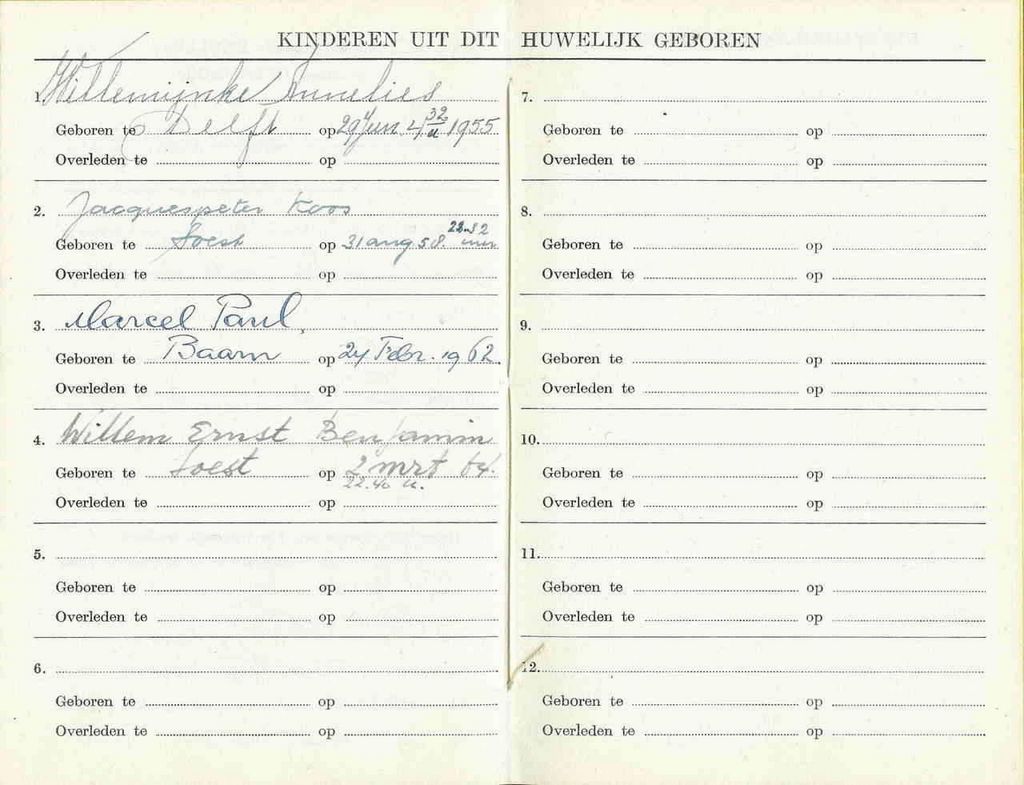 KINDEREN UIT DIT HUWELIJK GEBOREN
1. Willemijnke Annelies
Geboren te Delft op 29 Jun. 4 32 u 1955
Overleden te op
2. Jacquespeter Koos
Geboren te Soest op 31 aug 58. 22.52 uur
Overleden te op
3. Marcel Paul.
Geboren te Baarn op 24 Febr. 1962
Overleden te op
4. Willem Ernst Benjamin
Geboren te Soest op 2 mrt 64.
22.40 u.
Overleden te op
5.
Geboren te op
Overleden te op
6.
Geboren te op
Overleden te op
7.
Geboren te op
Overleden te op
8.
Geboren te op
Overleden te op
9.
Geboren te op
Overleden te op
10.
Geboren te op
Overleden te op
11.
Geboren te op
Overleden te op
12.
Geboren te op
Overleden te op